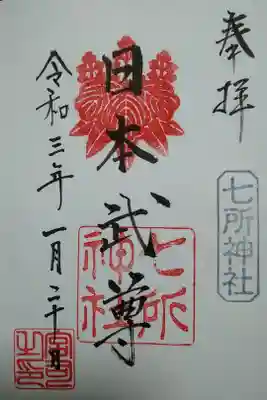 奉拝
七所神社
日本武尊
七所神社
令和三年一月二十日
宮司之印